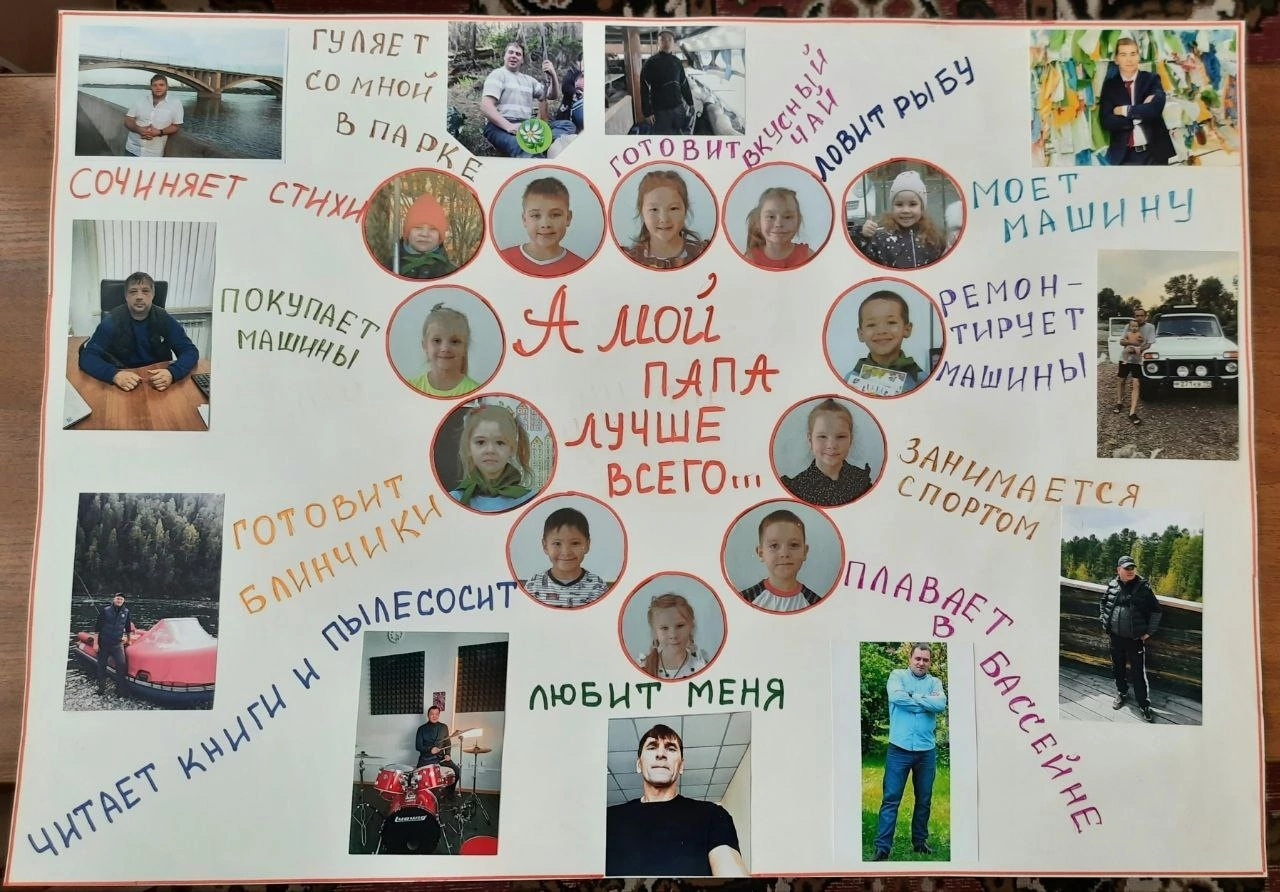 ГУЛЯЕТ
СО МНОЙ
В ПАРКЕ
ГОТОВИТ
ВКУСНЫЙ
ЧАЙ
ЛОВИТ РЫБУ
СОЧИНЯЕТ СТИХИ
МОЕТ
МАШИНУ
ПОКУПАЕТ
МАШИНЫ
А МОЙ
ПАПА
ЛУЧШЕ
ВСЕГО...
РЕМОН-
ТИРУЕТ
МАШИНЫ
ГОТОВИТ
БЛИНЧИКИ
ЗАНИМАЕТСЯ
СПОРТОМ
ЧИТАЕТ КНИГИ И ПЫЛЕСОСИТ
ПЛАВАЕТ
В
БАССЕЙНЕ
ЛЮБИТ МЕНЯ
Ludwig